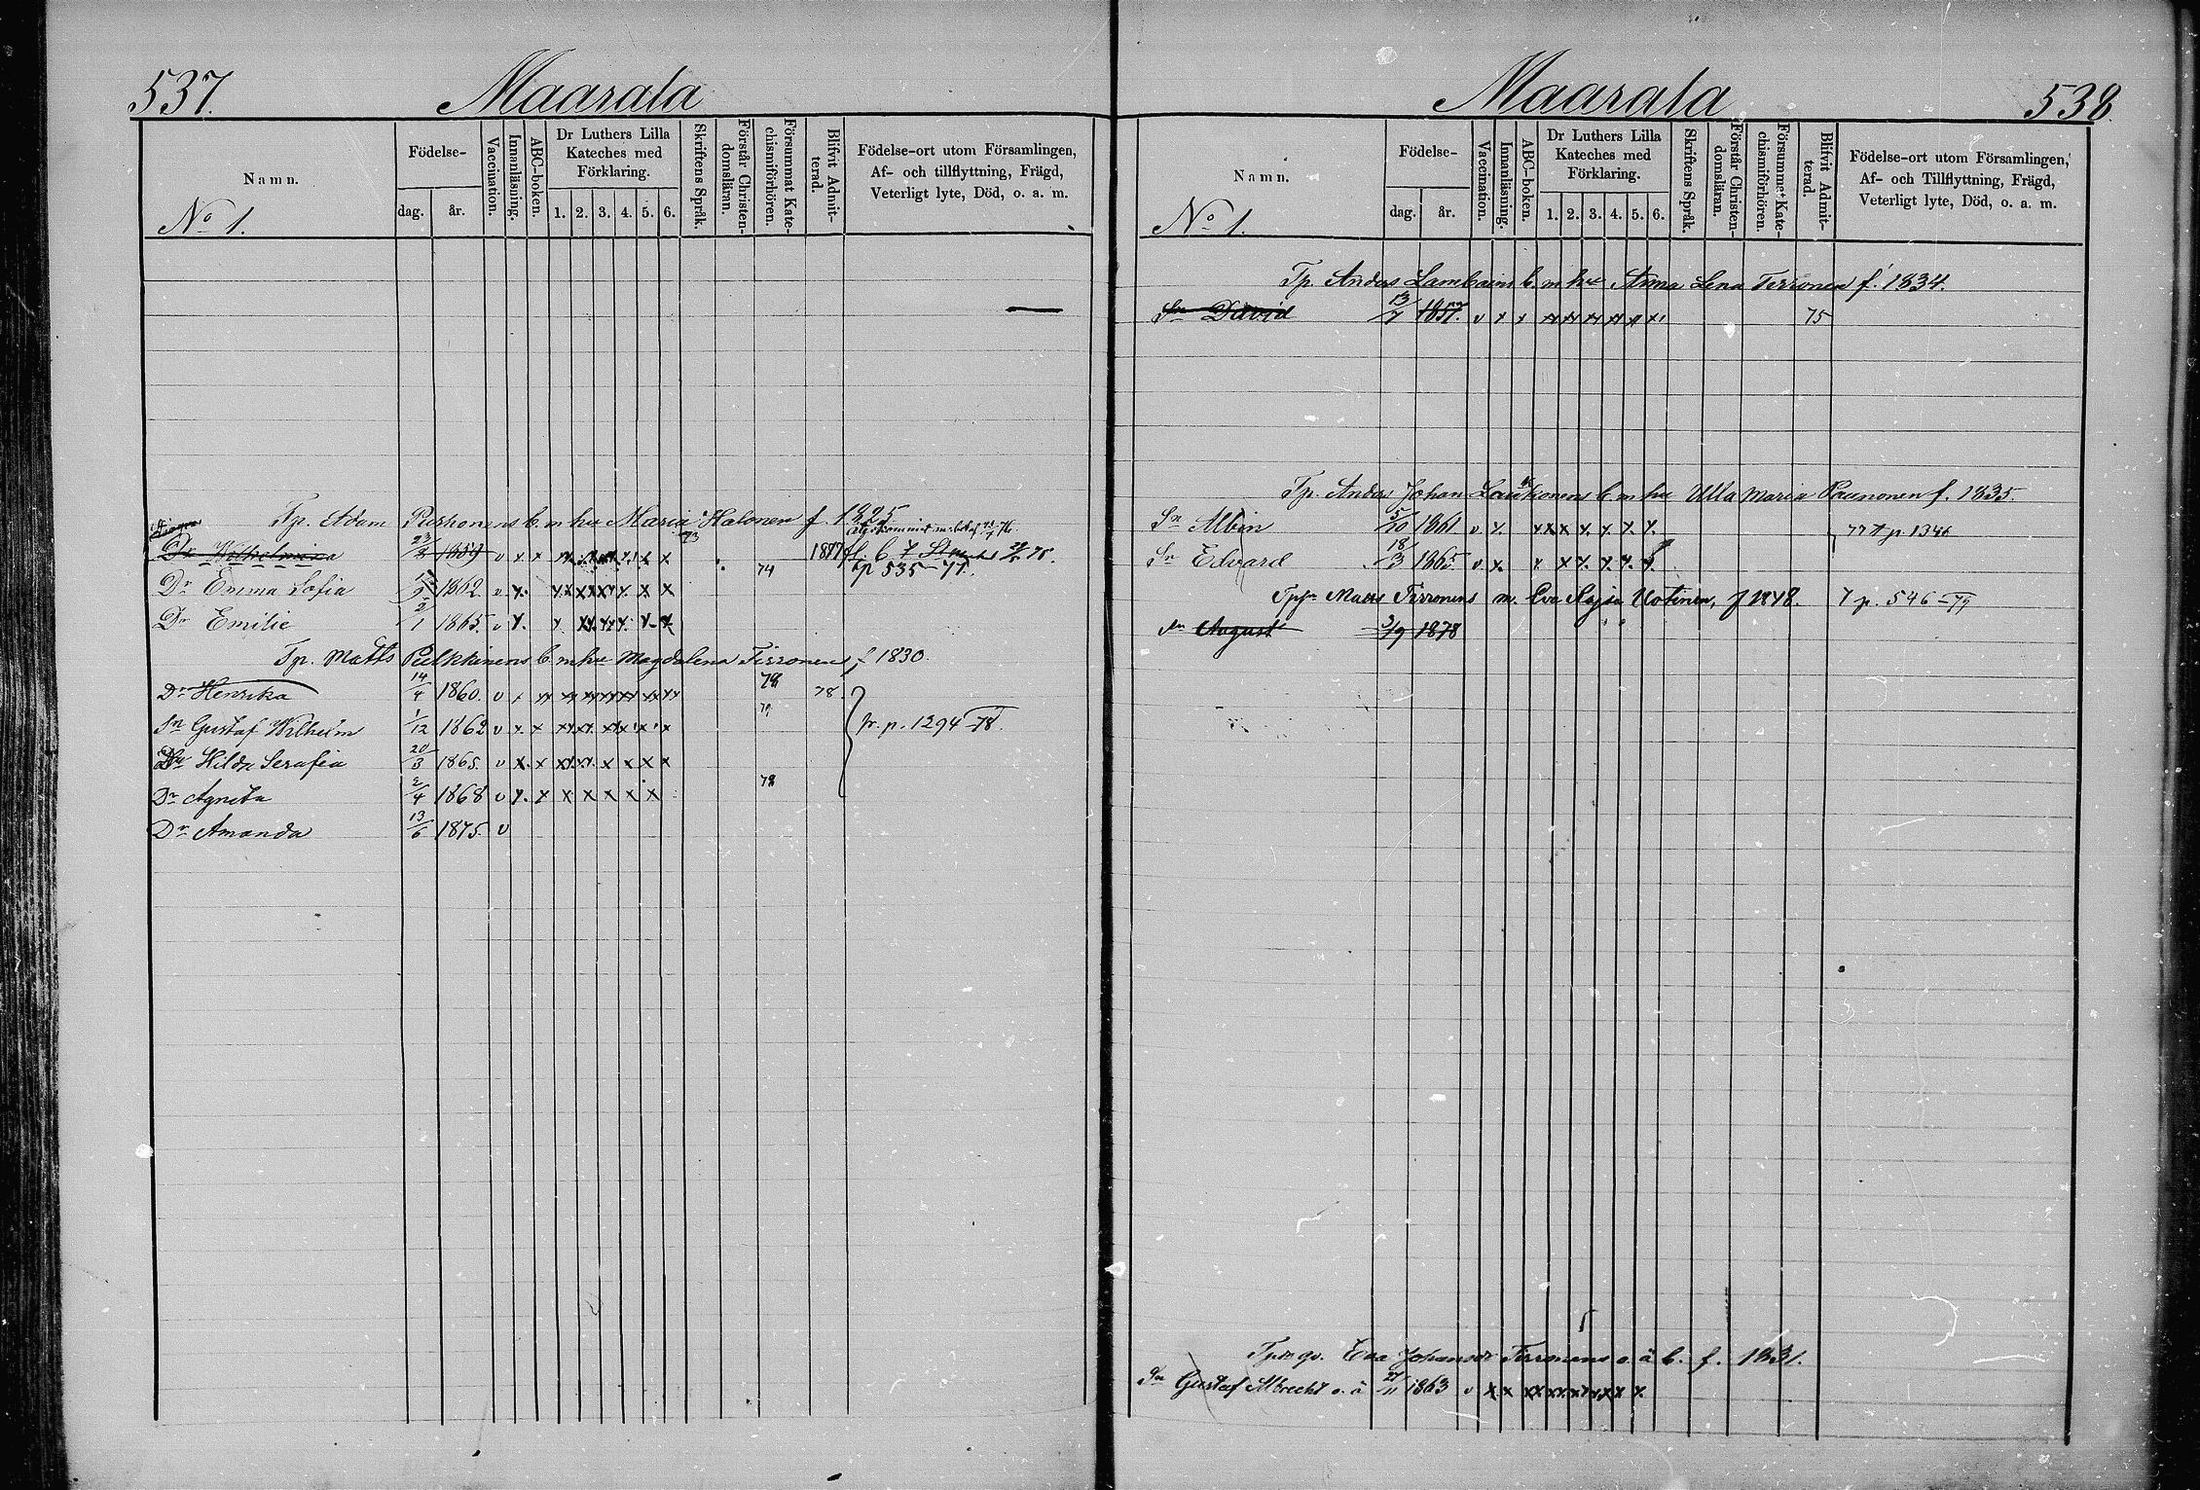 537.
Maarala
Namn.
Födelse-
dag.
år.
Vaccination.
Innanläsning.
ABC-boken.
Dr Luthers Lilla
Kateches med
Förklaring.
1. 2. 3. 4. 5. 6.
Skriftens Språk.
Förstår Christen-
domsläran.
Försummat Kate-
chismiförhören.
Blifvit Admit-
terad.
Födelse-ort utom Församlingen,
Af- och tillflyttning, Frägd,
Veterligt lyte, Död, o. a. m.
No 1.
Tp. Adam Purhonens b. m hu Maria Halonen f. 1825
Dr Wilhelmina 23/3 1859 v x x 73 1877
p 535-77.
Dr Emma Sofia 1862 v x. x x x x x x x 74
Dr Emilie 2/1 1865. v x.
Tp. Matts Pulkkinens b m hu Magdalena Tirronens f 1830.
Dr Henrika 14/4 1860. v x xx xx xx xx xx xx 78 78
Sn Gustaf Wilhelm 1/12 1862 v x x 79 tr. p. 1294-78.
Hilda Serafia 20/3 1865. v x. x xx xx. x x x x
Dr Agneta 2/4 1868 v x. x x x x x x 78
Dr Amanda 13/6 1875. v
Maarala
538.
Namn.
Födelse-
dag.
år.
Vaccination.
Innanläsning.
ABC-boken.
Dr Luthers Lilla
Kateches med
Förklaring.
1. 2. 3. 4. 5. 6.
Skriftens Språk.
Förstår Christen-
domsläran.
Försummat Kate-
chismiförhören.
Blifvit Admit-
terad.
Födelse-ort utom Församlingen,
Af- och Tillflyttning, Frägd,
Veterligt lyte, Död, o. a. m.
No 1.
Tp. Anders Lambains b. m hu Anna Lena Tirronen f. 1834.
Sn David 13/7 1857. v x x xx xx xx xx x x 75
Tp. Anders Johan Laukonens b. m hu Ulla Maria Paunonen f. 1835.
Sn Albin 5/10 1861 v x. x x x x. x. x. x. 77 p 1346
Sn Edvard 18/3 1865. v x. x x x. x. x.
Matts Tirronens m. Eva Kajsa Uotinen, f 1848. T p. 546-79
Sn August 3/9 1878
Eva Johansdr Tirronens o. ä b. f. 1831.
Sn Gustaf Albrecht o. ä 1863 v x x xx xx x x x x x.